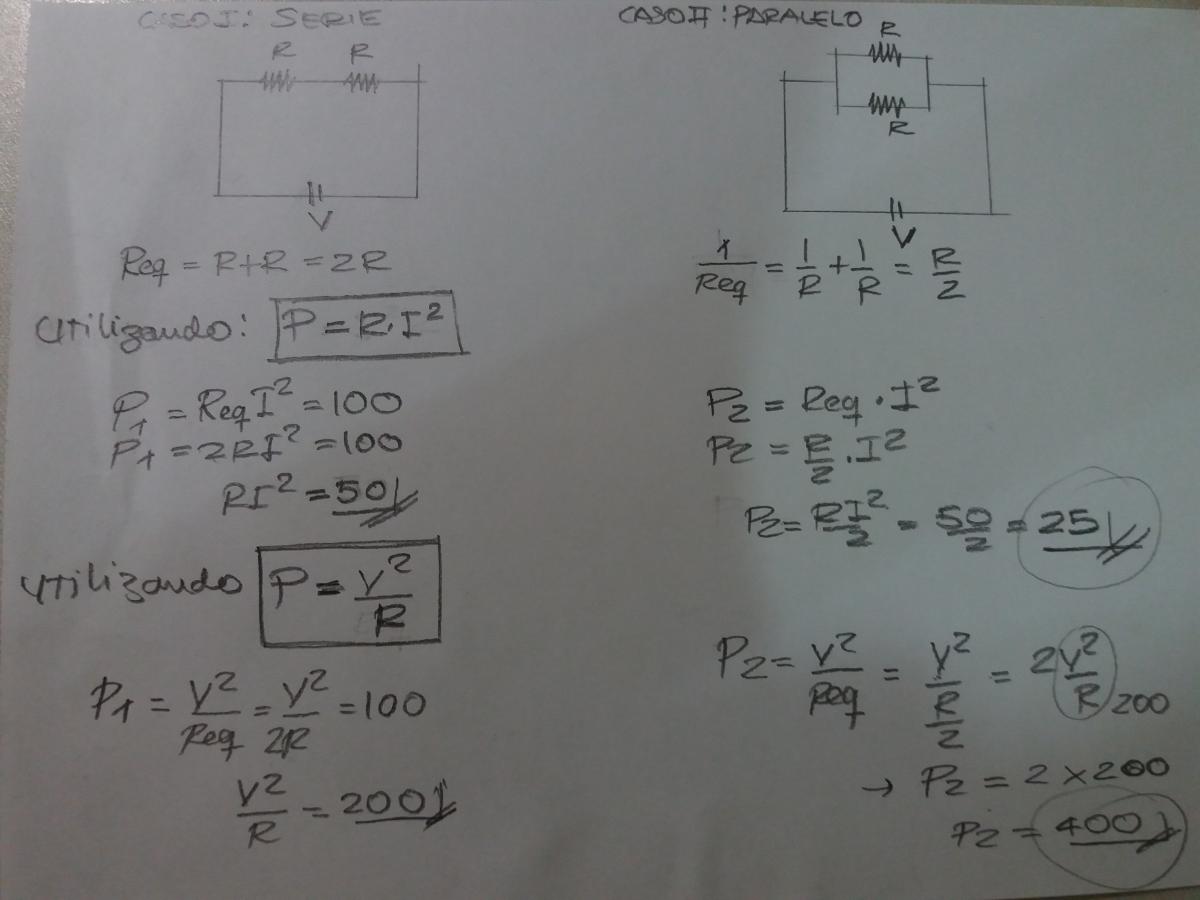 CASO I: SERIE
R R
V
Req = R+R = 2R
Utilizando: P = R·I²
P1 = Req I² = 100
P1 = 2RI² = 100
RI² = 50
Utilizando P = V²/R
P1 = V²/Req = V²/2R = 100
V²/R = 200
CASO II: PARALELO
R
R
V
1/Req = 1/R + 1/R = R/2
P2 = Req · I²
P2 = R/2 · I²
P2 = RI²/2 = 50/2 = 25
P2 = V²/Req = V²/(R/2) = 2 V²/R 200
→ P2 = 2 × 200
P2 = 400